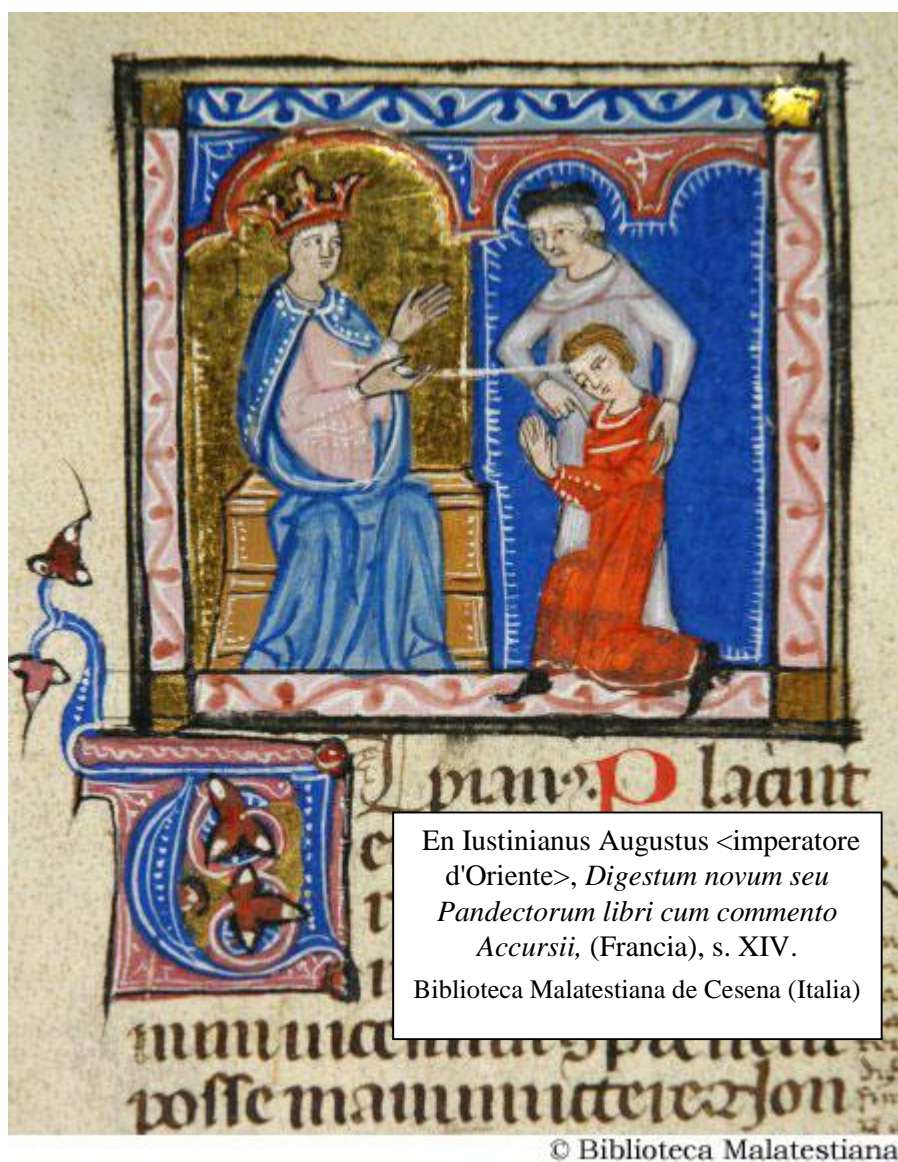 Placuit
En Iustinianus Augustus <imperatore
d'Oriente>, Digestum novum seu
Pandectorum libri cum commento
Accursii, (Francia), s. XIV.
Biblioteca Malatestiana de Cesena (Italia)
posse manumictere
© Biblioteca Malatestiana